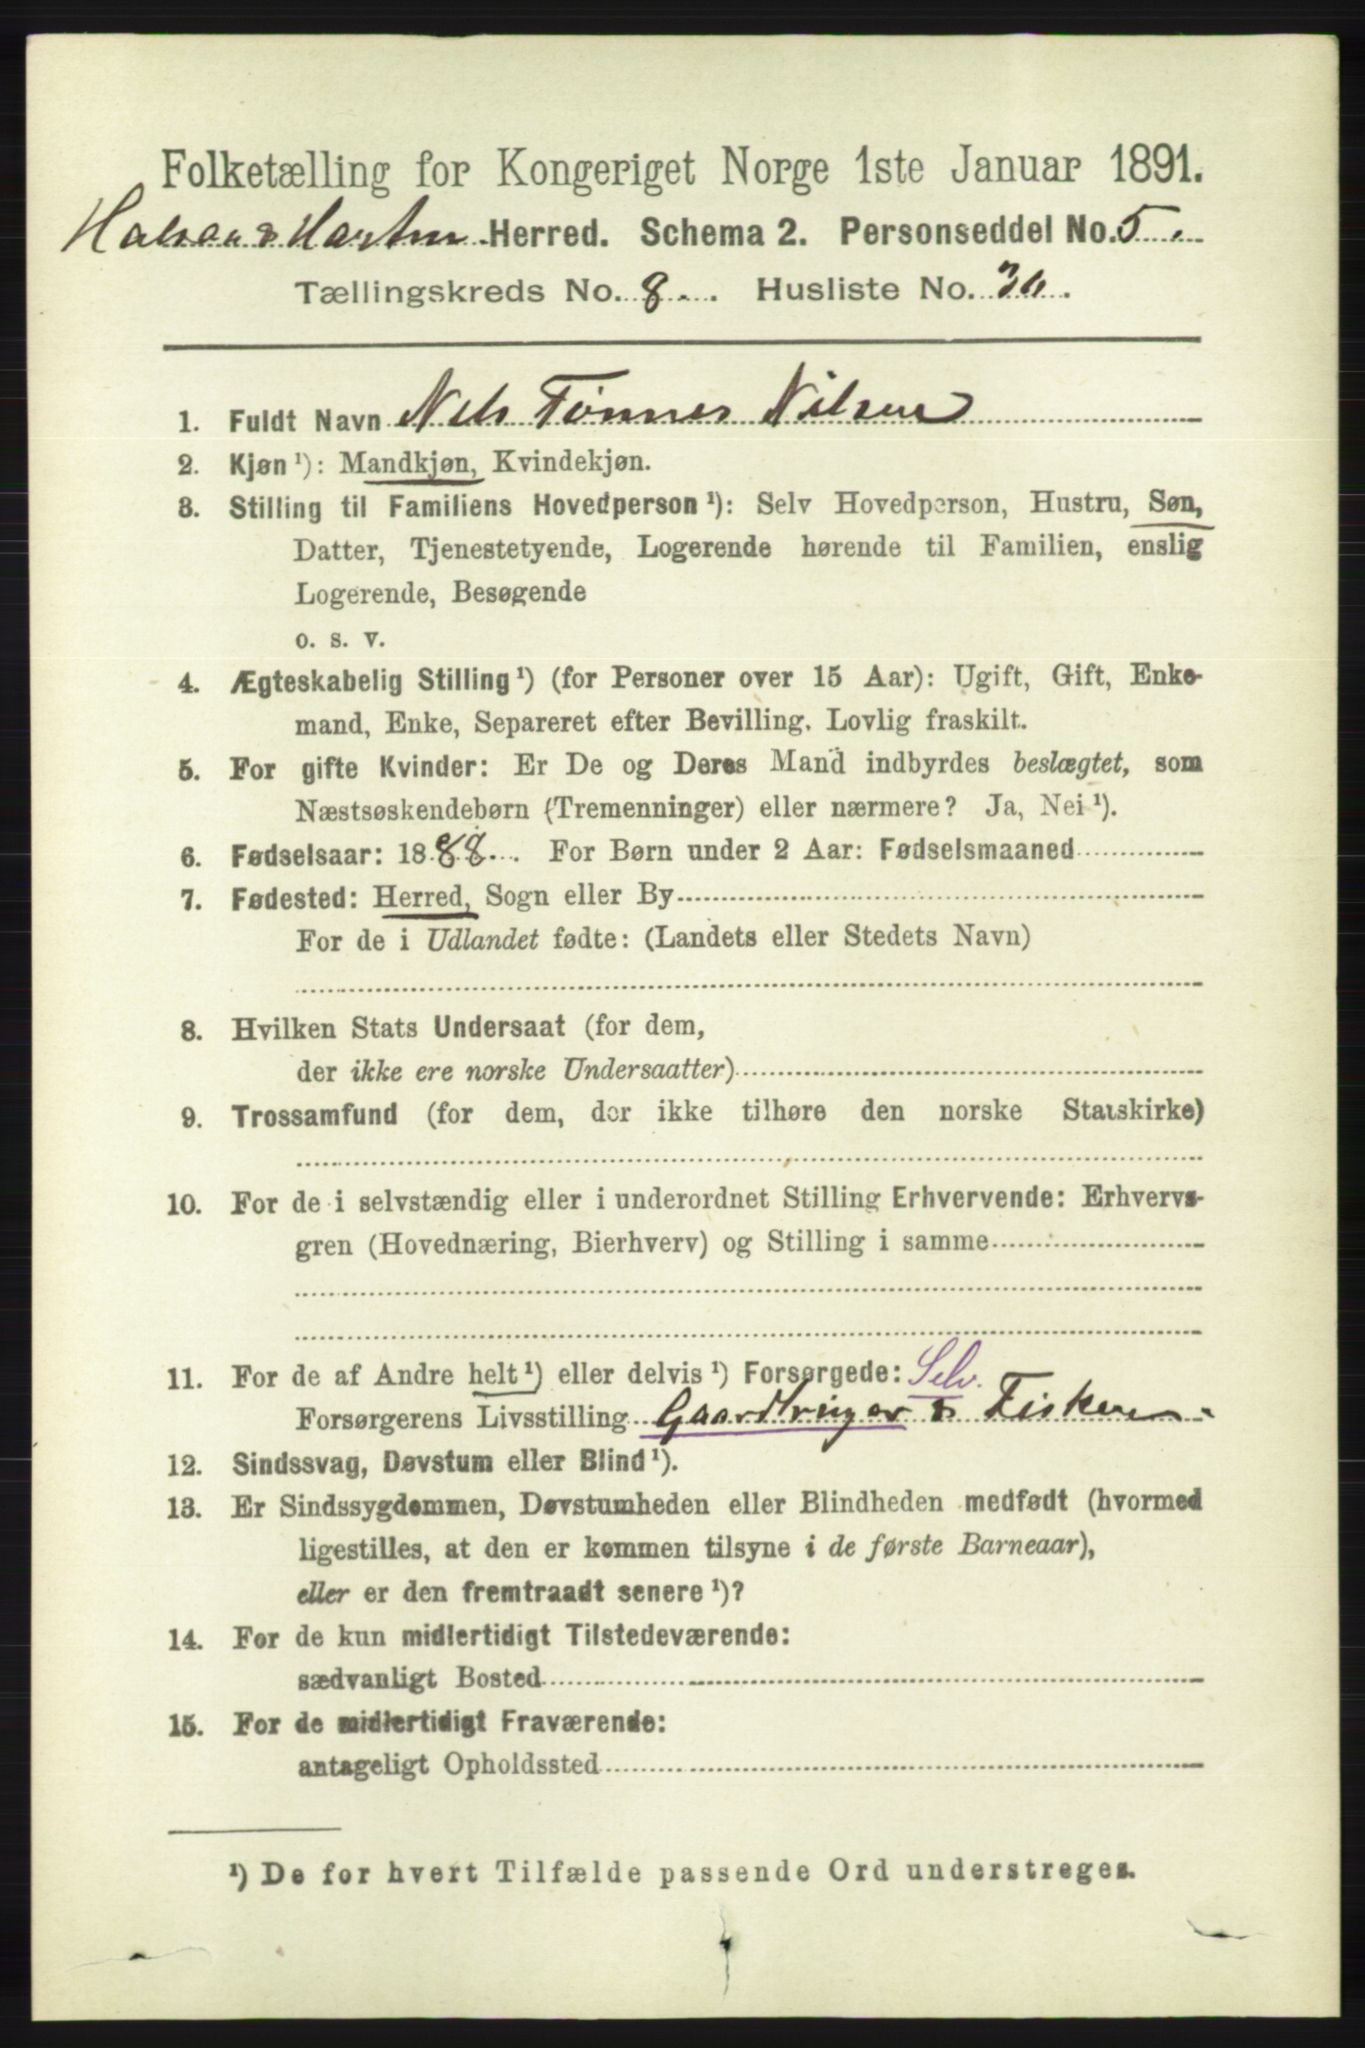 Folketælling for Kongeriget Norge 1ste Januar 1891.
Halsaa & Hartm Herred. Schema 2. Personseddel No. 5.
Tællingskreds No. 8. Husliste No.
1. Fuldt Navn Nels Tønnes Nilsen
2. Kjøn ¹): Mandkjøn, Kvindekjøn.
3. Stilling til Familiens Hovedperson ¹): Selv Hovedperson, Hustru, Søn,
Datter, Tjenestetyende, Logerende hørende til Familien, enslig
Logerende, Besøgende
o. s. v.
4. Ægteskabelig Stilling ¹) (for Personer over 15 Aar): Ugift, Gift, Enke-
mand, Enke, Separeret efter Bevilling. Lovlig fraskilt.
5. For gifte Kvinder: Er De og Deres Mand indbyrdes beslægtet, som
Næstsøskendebørn (Tremenninger) eller nærmere? Ja, Nei ¹).
6. Fødselsaar: 1888. For Børn under 2 Aar: Fødselsmaaned
7. Fødested: Herred, Sogn eller By
For de i Udlandet fødte: (Landets eller Stedets Navn)
8. Hvilken Stats Undersaat (for dem,
der ikke ere norske Undersaatter)
9. Trossamfund (for dem, der ikke tilhøre den norske Statskirke)
10. For de i selvstændig eller i underordnet Stilling Erhvervende: Erhvervs-
gren (Hovednæring, Bierhverv) og Stilling i samme
11. For de af Andre helt ¹) eller delvis ¹) Forsørgede: Selv.
Forsørgerens Livsstilling Gaardbruger & Fisker
12. Sindssvag, Døvstum eller Blind ¹).
13. Er Sindssygdommen, Døvstumheden eller Blindheden medfødt (hvormed
ligestilles, at den er kommen tilsyne i de første Barneaar),
eller er den fremtraadt senere ¹)?
14. For de kun midlertidigt Tilstedeværende:
sædvanligt Bosted
15. For de midlertidigt Fraværende:
antageligt Opholdssted
¹) De for hvert Tilfælde passende Ord understreges.